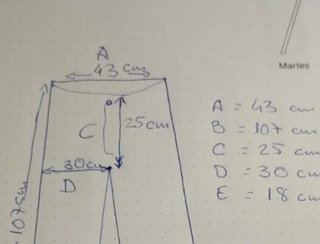 Martes
A
43 cm
C
25 cm
30 cm
D
107 cm
A = 43 cm
B = 107 cm
C = 25 cm
D = 30 cm
E = 18 cm